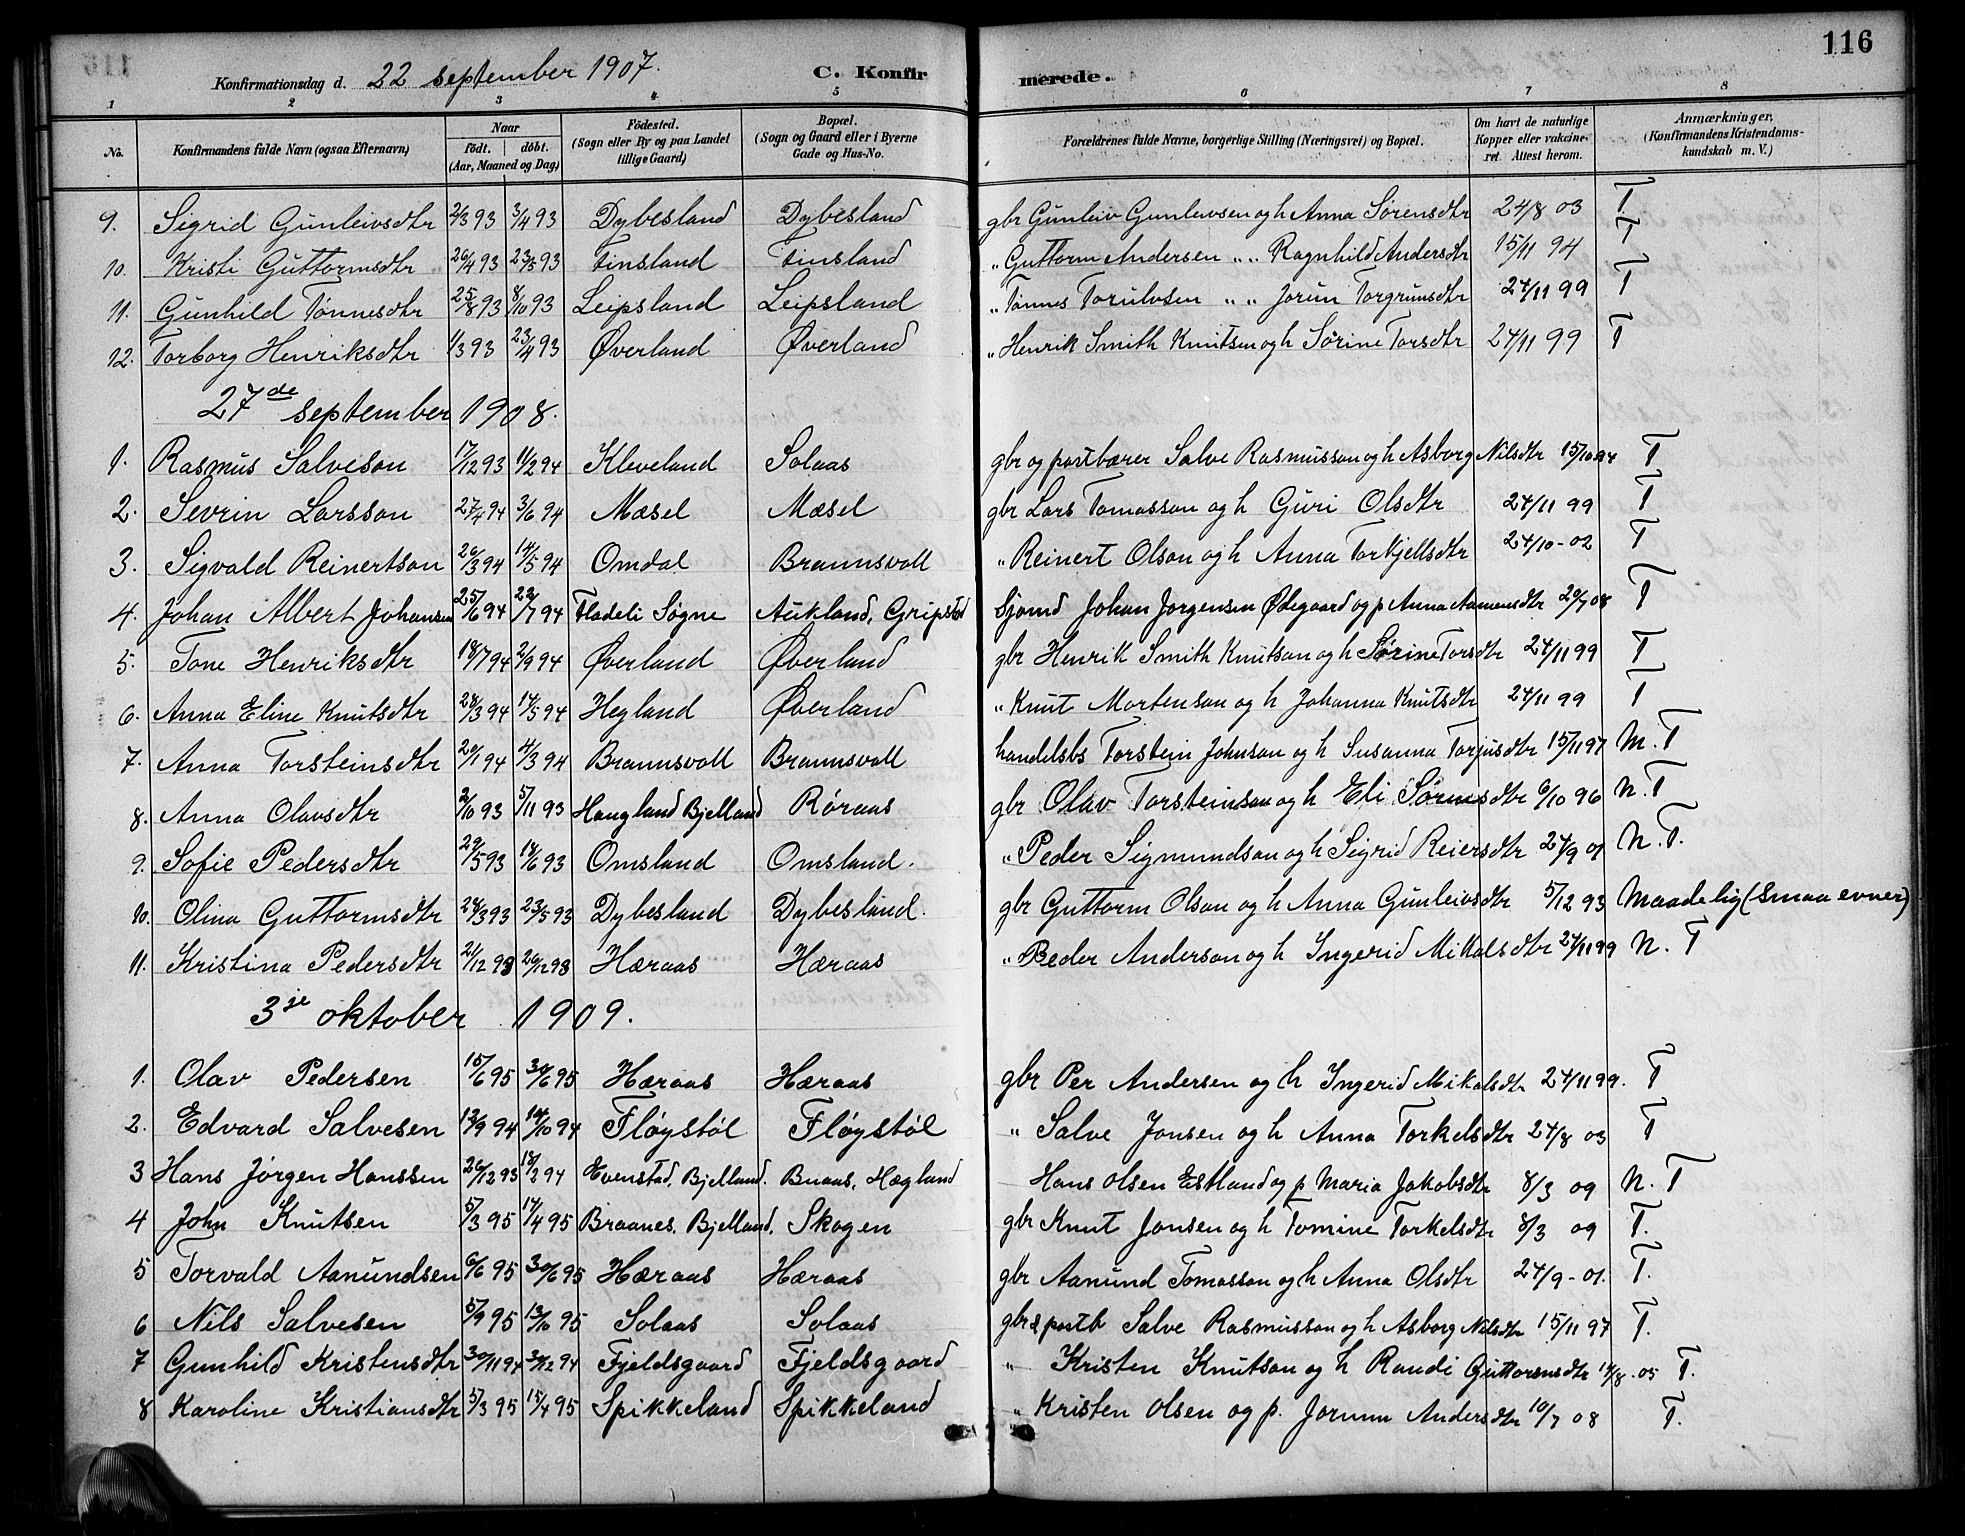 116
Konfirmationsdag d. 22 september 1907. C. Konfirmerede.
1 2 3 4 5 6 7 8
No. Konfirmandens fulde Navn (ogsaa Efternavn) Naar født. døbt. (Aar, Maaned og Dag) Fødested. (Sogn eller By og paa Landet tillige Gaard) Bopæl. (Sogn og Gaard eller i Byerne Gade og Hus-No. Forældrenes fulde Navne, borgerlige Stilling (Næringsvei) og Bopæl. Om havt de naturlige Kopper eller vakcineret. Attest herom. Anmærkninger, (Konfirmandens Kristendomskundskab m. V.)
9. Sigrid Gunleivsdtr 2/3 93 3/4 93 Dybesland Dybesland gbr Gunleiv Gunleivsen og h Anna Sørensdtr 24/8 03 T
10. Kristi Guttormsdtr 26/4 93 23/5 93 Finsland Finsland " Guttorm Andersen " " Ragnhild Andersdtr 15/11 94 T
11. Gunhild Tønnesdtr 25/8 93 8/10 93 Leipsland Leipsland " Tønnes Torulvsen " " Jorun Torgrimsdtr 24/11 99 T
12. Torborg Henriksdtr 1/3 93 23/4 93 Øverland Øverland " Henrik Smith Knutsen og h Sørine Torsdtr 24/11 99 T
27de september 1908.
1. Rasmus Salveson 17/12 93 11/2 94 Kleveland Solaas gbr og postbærer Salve Rasmusson og h Asborg Nilsdtr 15/10 94 T
2. Sevrin Larsson 27/4 94 3/6 94 Mæsel Mæsel gbr Lars Tomasson og h Guri Olsdtr 24/11 99 T
3. Sigvald Reinertson 20/3 94 14/5 94 Omdal Braunsvoll " Reinert Olson og h Anna Torkjellsdtr 24/10-02 T
4. Johan Albert Johansen 25/6 94 22/7 94 Fladeli Søgne Aukland, Gripstad Sjømd Johan Jørgensen Ødegaard og p Anna Aamensdtr 20/7 08 T
5. Tone Henriksdtr 18/7 94 2/9 94 Øverland Øverland gbr Henrik Smith Knutson og h Sørine Torsdtr 24/11 99 T
6. Anna Eline Knutsdtr 28/3 94 14/5 94 Hegland Øverland " Knut Mortenson og h Johanna Knutsdtr 24/11 99 T
7. Anna Torsteinsdtr 20/1 94 4/3 94 Braunsvoll Braunsvoll handelsbs Torstein Johnson og h Susanna Torjusdtr 15/11 97 M. T
8. Anna Olavsdtr 2/10 93 5/11 93 Haugland Bjelland Røraas gbr Olav Torsteinson og h Eli Sørensdtr 6/10 96 N. T
9. Sofie Pedersdtr 29/5 93 18/6 93 Omsland Omsland. " Peder Sigmundson og h Sigrid Reiersdtr 24/9 01 N. T.
10. Olina Guttormsdtr 24/3 93 23/5 93 Dybesland Dybesland. gbr Guttorm Olson og h Anna Gunleivsdtr 5/12 93 Maadelig (smaa evner)
11. Kristina Pedersdtr 21/12 93 26/12 93 Hæraas Hæraas " Peder Anderson og h Ingerid Mikalsdtr 24/11 99 N. T
3je oktober 1909.
1. Olav Pedersen 15/6 95 30/6 95 Hæraas Hæraas gbr Per Andersen og h Ingerid Mikalsdtr 24/11 99. T
2. Edvard Salvesen 12/9 94 14/10 94 Fløystøl Fløystøl " Salve Jonsen og h Anna Torkelsdtr 24/8 03 T
3 Hans Jørgen Hanssen 26/12 93 18/2 94 Evenstad, Bjelland. Buaas, Hægland Hans Olsen Estland og p Maria Jakobsdtr 8/3 09 N. T
4 John Knutsen 5/3 95 14/4 95 Braanes, Bjelland. Skogen gbr Knut Jonsen og h Tomine Torkelsdtr 8/3 09 T.
5 Torvald Aanundsen 6/6 95 30/6 95 Hæraas Hæraas gbr Aanund Tomasson og h Anna Olsdtr 24/9-01. T.
6 Nils Salvesen 5/9 95 13/10 95 Solaas Solaas gbr & postb Salve Rasmusson og h Asborg Nilsdtr 15/11 97 T.
7 Gunhild Kristensdtr 30/11 94 31/12 94 Fjeldsgaard Fjeldsgaard " Kristen Knutson og h Randi Guttormsdtr 14/8.05 T.
8 Karoline Kristiansdtr 5/3 95 15/4 95 Spikkeland Spikkeland " Kristen Olsen og p. Jorunn Andersdtr 10/7 08 T.